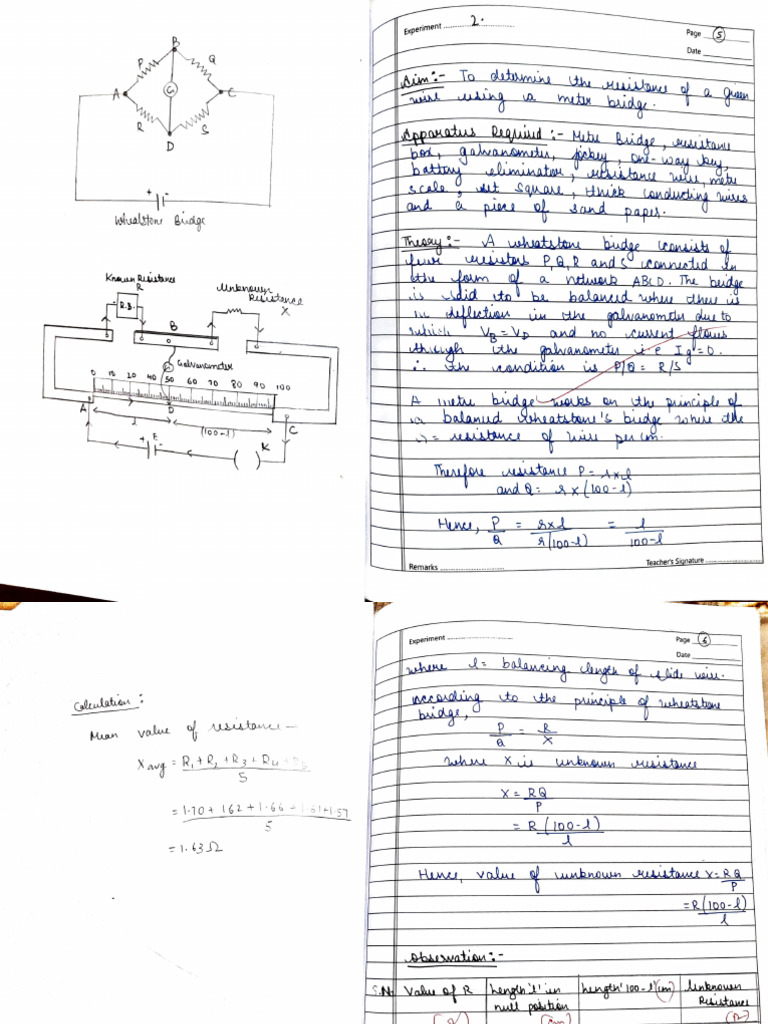 B
P
Q
A
G
C
R
S
D
+
-
Wheatstone Bridge
Known Resistance
R
R.B.
Unknown
Resistance
X
B
Galvanometer
0 10 20 30 40 50 60 70 80 90 100
A
D
C
l
(100-l)
+ E -
K
( )
Experiment 2.
Page 5
Date
Aim:- To determine the resistance of a given
wire using a meter bridge.
Apparatus Required:- Metre Bridge, resistance
box, galvanometer, jockey, one-way key,
battery eliminator, resistance wire, metre
scale, set square, thick conducting wires
and a piece of sand paper.
Theory:- A wheatstone bridge consists of
four resistors P,Q,R and S connected in
the form of a network ABCD. The bridge
is said to be balanced where there is
deflection in the galvanometer due to
which VB = VD and no current flows
through the galvanometer i.e Ig = 0.
∴ the condition is P/Q = R/S
A metre bridge works on the principle of
a balanced wheatstone's bridge where the
= resistance of wire per cm.
Therefore resistance P = r x l
and Q = r x (100-l)
Hence, P/Q = r x l / r(100-l) = l / 100-l
Remarks
Teacher's Signature
Calculation:
Mean value of resistance -
X avg = R1 + R2 + R3 + R4 + R5 / 5
= 1.70 + 1.62 + 1.66 + 1.61 + 1.57 / 5
= 1.63 Ω
Experiment
Page 6
Date
where l = balancing length of slide wire.
According to the principle of wheatstone
bridge,
P/Q = R/X
where X is unknown resistance
X = RQ/P
= R(100-l)/l
Hence, value of unknown resistance X = RQ/P
= R(100-l)/l
Observation:-
S.No Value of R Length 'l' in Length '100-l' (cm) Unknown
null position Resistance
(Ω) (cm) (Ω)